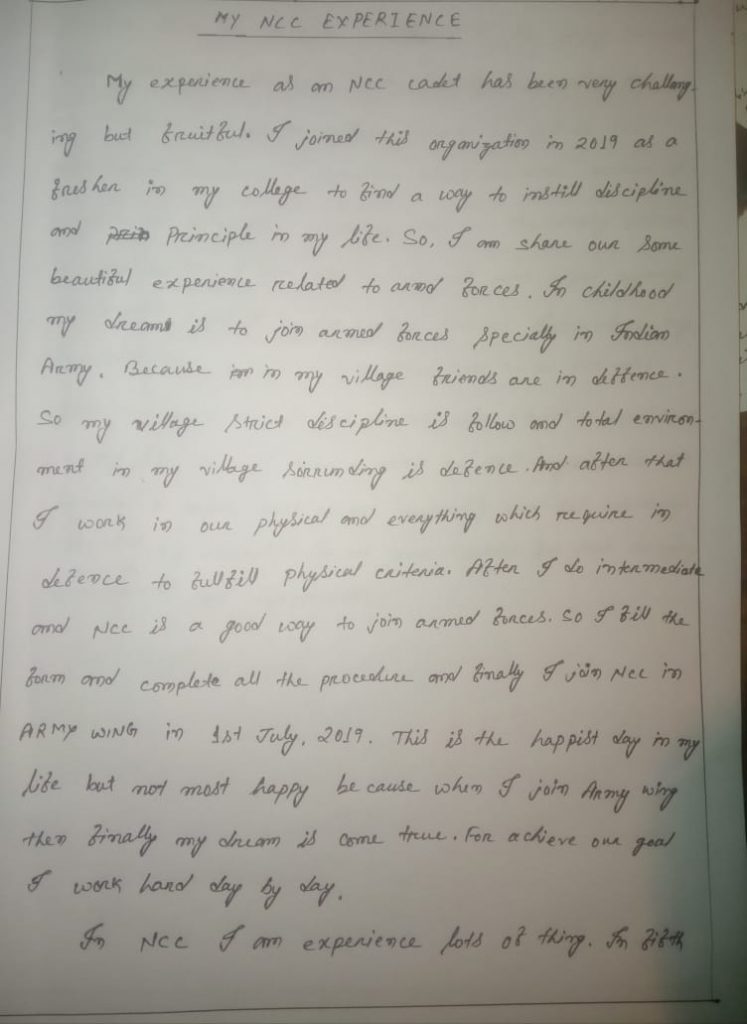 MY NCC EXPERIENCE
My experience as an NCC cadet has been very challeng-
ing but fruitful. I joined this organization in 2019 as a
fresher in my college to find a way to instill discipline
and Principle in my life. So, I am share our some
beautiful experience related to armd forces. In childhood
my dreams is to join armed forces specially in Indian
Army. Because in my village friends are in deffence.
So my village strict discipline is follow and total environ-
ment in my village sorrunding is defence. And after that
I work in our physical and everything which require in
defence to fullfill physical criteria. After I do intermediate
and NCC is a good way to join armed forces. So I fill the
form and complete all the procedure and finally I join NCC in
ARMY WING in 1st July, 2019. This is the happist day in my
life but not most happy because when I join Army wing
then finally my dream is come true. For achieve our goal
I work hard day by day.
In NCC I am experience lots of thing. In fifth